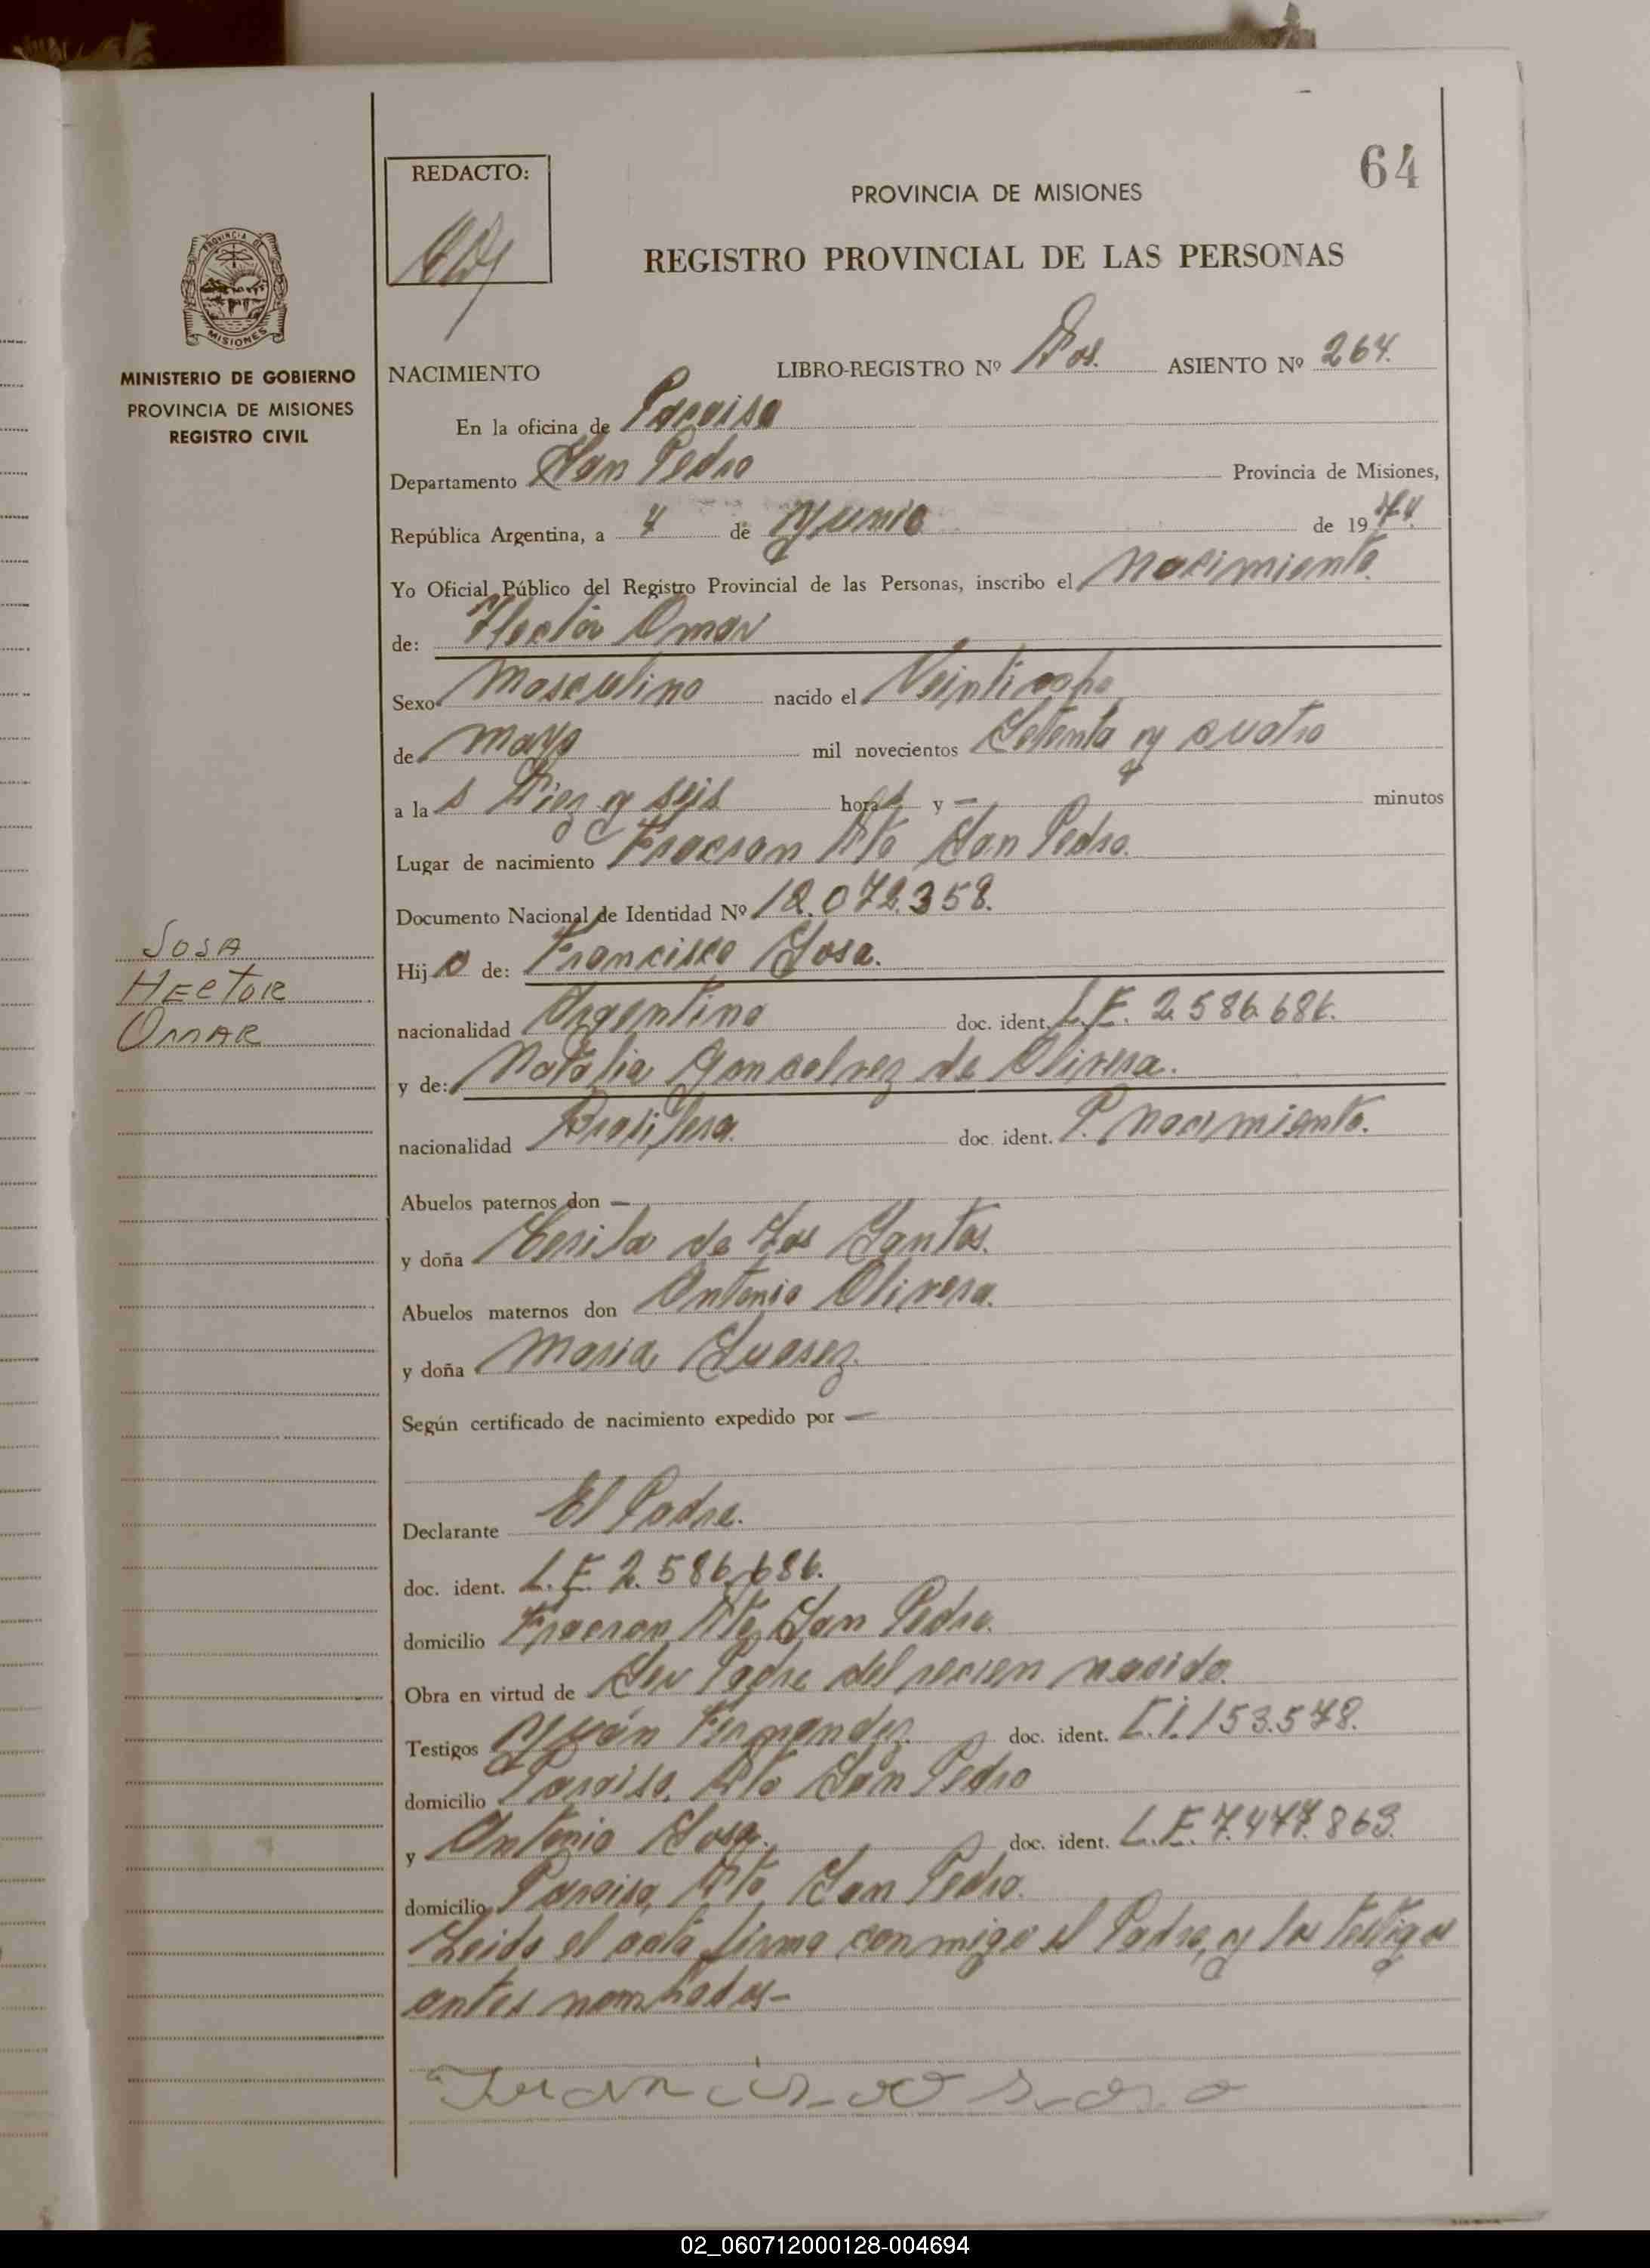 64
REDACTO:
PROVINCIA DE MISIONES
REGISTRO PROVINCIAL DE LAS PERSONAS
PROVINCIA DE
MISIONES
MINISTERIO DE GOBIERNO
PROVINCIA DE MISIONES
REGISTRO CIVIL
SOSA
HECTOR
OMAR
NACIMIENTO LIBRO-REGISTRO Nº Dos. ASIENTO Nº 264.
En la oficina de Paraiso
Departamento San Pedro Provincia de Misiones,
República Argentina, a 4 de Junio de 1974
Yo Oficial Público del Registro Provincial de las Personas, inscribo el Nacimiento.
de: Hector Omar
Sexo Masculino nacido el Veintiocho
de mayo mil novecientos Setenta y cuatro
a la s Diez y seis horas y — minutos
Lugar de nacimiento Fracran Dto San Pedro.
Documento Nacional de Identidad Nº 072.358.
Hijo de: Francisco Sosa.
nacionalidad Argentino doc. ident. L.E. 2.586.686.
y de: Natalia Goncalvez de Olivera.
nacionalidad Brasilera. doc. ident. P. Nacimiento.
Abuelos paternos don —
y doña de Los Santos.
Abuelos maternos don Antonio Olivera.
y doña Maria Suarez.
Según certificado de nacimiento expedido por —
Declarante El Padre.
doc. ident. L.E. 2.586.686.
domicilio Fracran Dto San Pedro.
Obra en virtud de Ser Padre del recien nacido.
Testigos Juán Fernandez. doc. ident. C.I. 153.578.
domicilio Paraiso. Dto San Pedro
y Antonio Sosa. doc. ident. L.E. 7.477.863.
domicilio Paraiso, Dto. San Pedro.
Leida el acta firma conmigo el Padre, y los testigos
antes nombrados-
Francisco Sosa
02_060712000128-004694